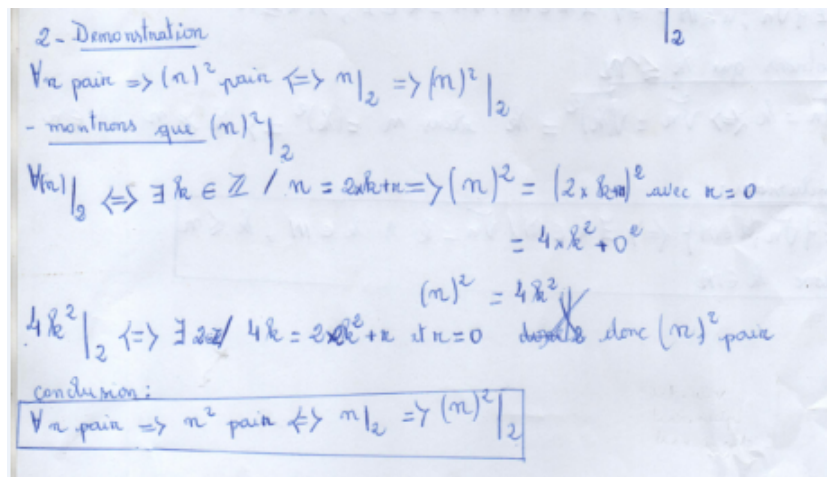 |₂
2 - Demonstration
∀n pair => (n)² pair <=> n|₂ => (n)²|₂
- montrons que (n)²|₂
∀(n)|₂ <=> ∃ k ∈ ℤ / n = 2×k+r => (n)² = (2×k+r)² avec r=0
= 4×k²+0²
(n)² = 4k²
4k²|₂ <=> ∃ / 4k = k²+r et r=0 donc (n)² pair
conclusion :
∀n pair => n² pair <=> n|₂ => (n)²|₂